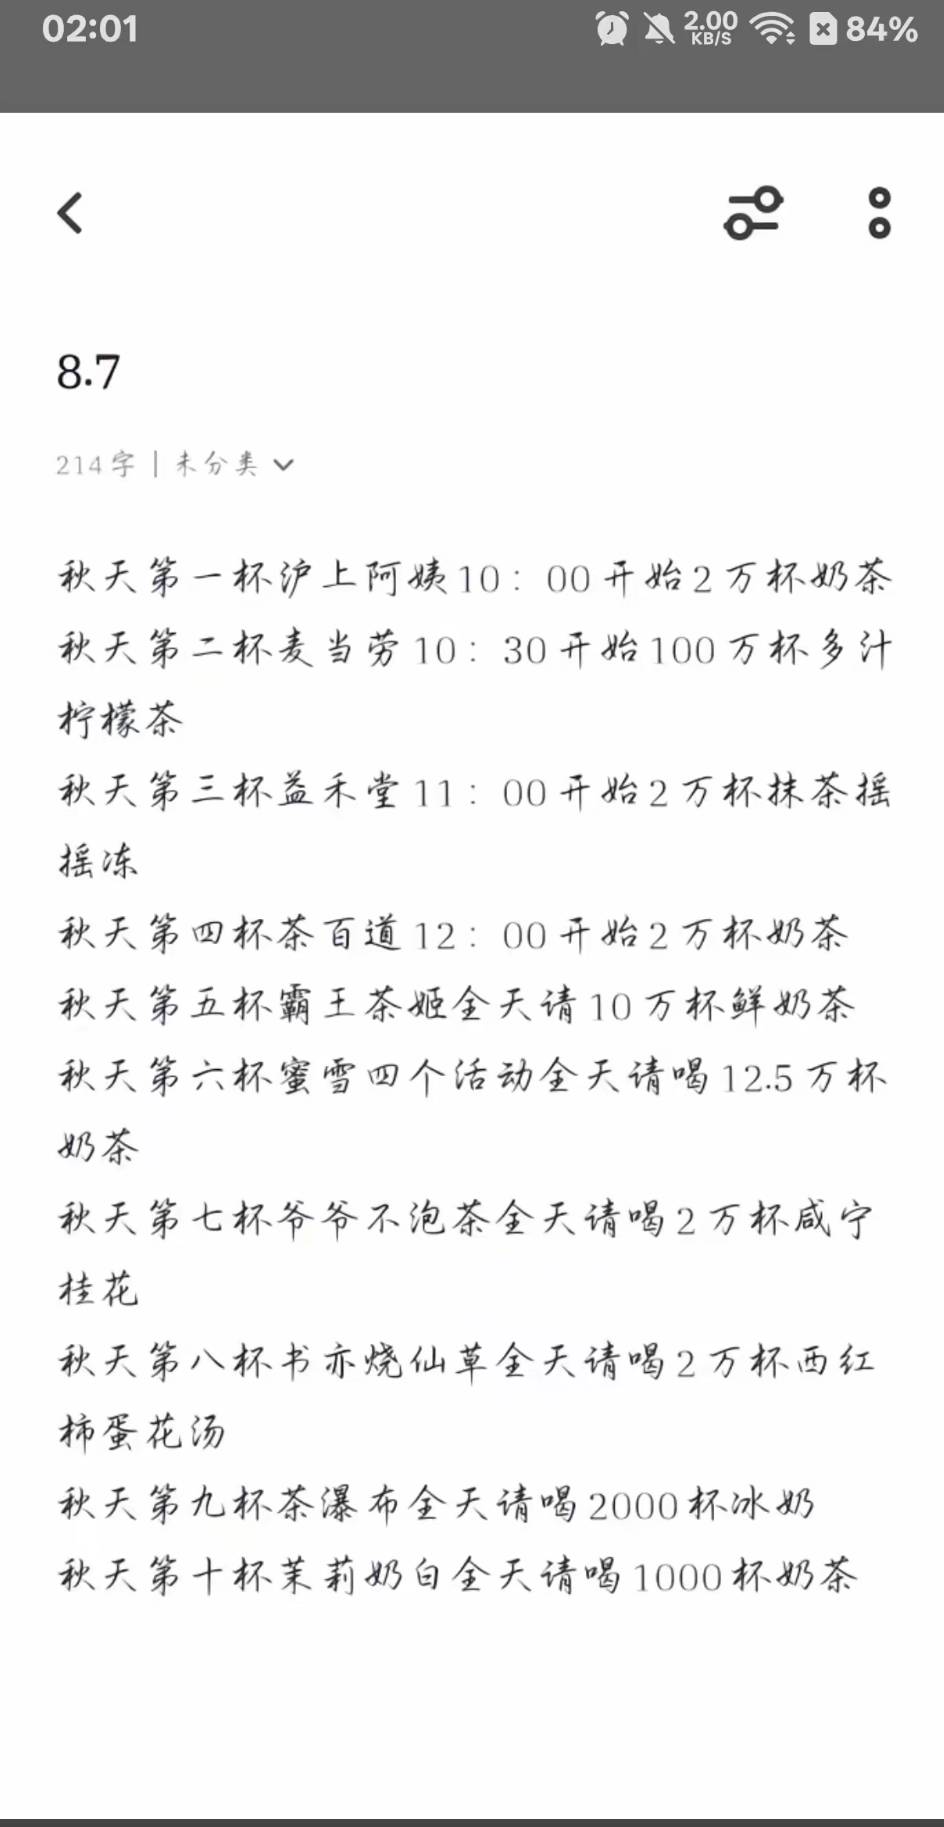 02:01
2.00
KB/S
84%
8.7
214字 | 未分类
秋天第一杯沪上阿姨10：00开始2万杯奶茶
秋天第二杯麦当劳10：30开始100万杯多汁
柠檬茶
秋天第三杯益禾堂11：00开始2万杯抹茶摇
摇冻
秋天第四杯茶百道12：00开始2万杯奶茶
秋天第五杯霸王茶姬全天请10万杯鲜奶茶
秋天第六杯蜜雪四个活动全天请喝12.5万杯
奶茶
秋天第七杯爷爷不泡茶全天请喝2万杯咸宁
桂花
秋天第八杯书亦烧仙草全天请喝2万杯西红
柿蛋花汤
秋天第九杯茶瀑布全天请喝2000杯冰奶
秋天第十杯茉莉奶白全天请喝1000杯奶茶